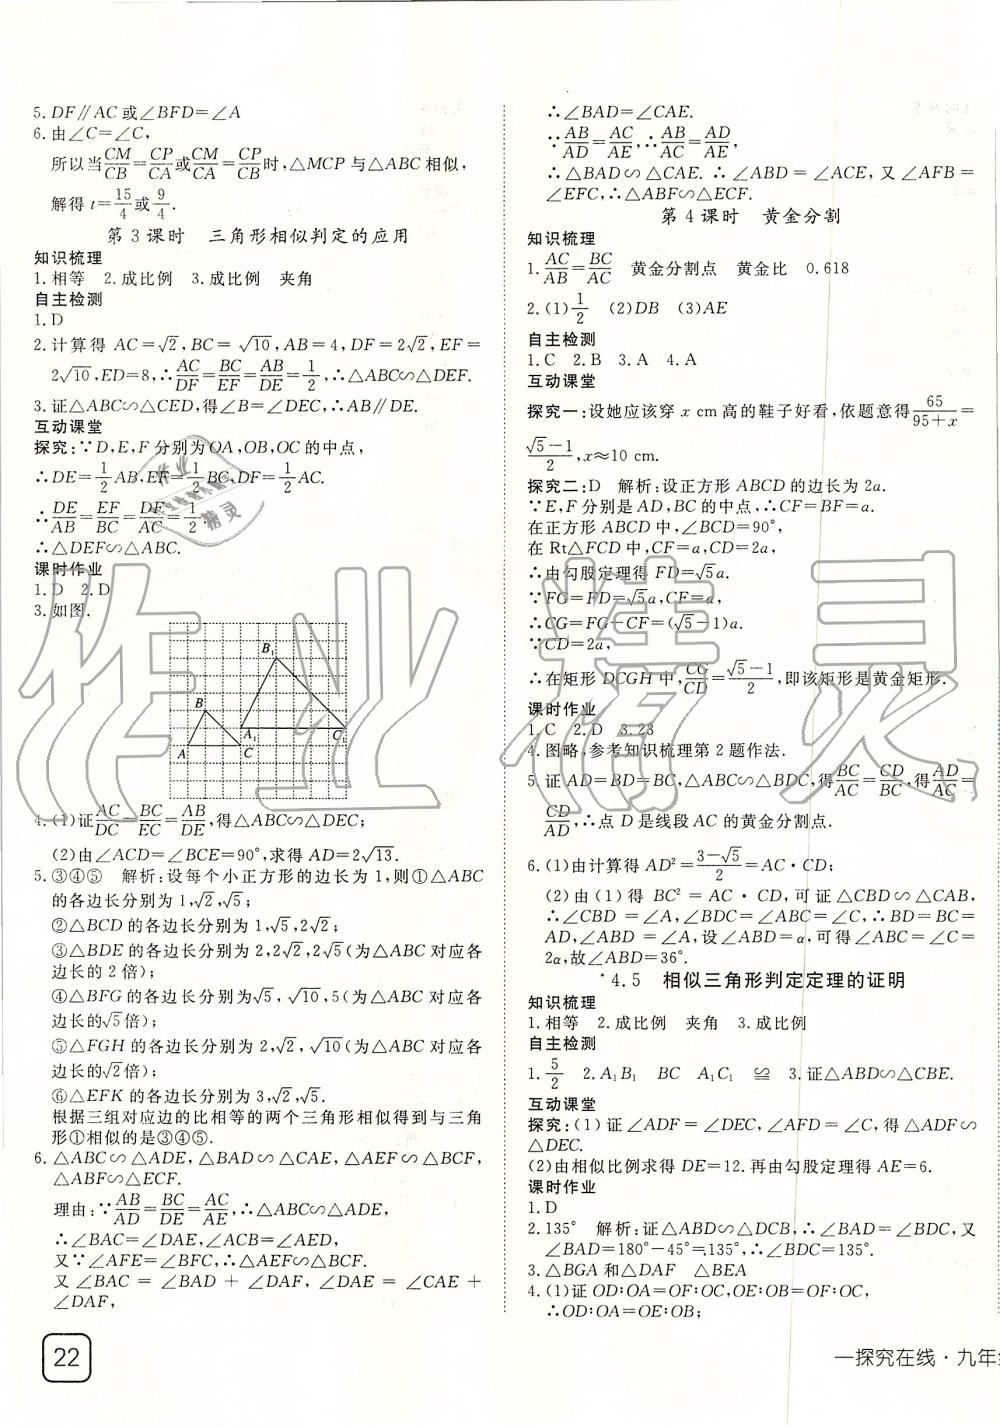 5. DF∥AC 或∠BFD=∠A
6. 由∠C=∠C,
所以当CM/CB=CP/CA或CM/CA=CP/CB时,△MCP 与△ABC 相似,
解得 t=15/4或9/4.
第 3 课时 三角形相似判定的应用
知识梳理
1. 相等 2. 成比例 3. 成比例 夹角
自主检测
1. D
2. 计算得 AC=√2, BC=√10, AB=4, DF=2√2, EF=
2√10, ED=8, ∴AC/DF=BC/EF=AB/DE=1/2, ∴△ABC∽△DEF.
3. 证△ABC∽△CED,得∠B=∠DEC,∴AB∥DE.
互动课堂
探究:∵D,E,F 分别为OA,OB,OC 的中点,
∴DE=1/2AB,EF=1/2BC,DF=1/2AC.
∴DE/AB=EF/BC=DF/AC=1/2.
∴△DEF∽△ABC.
课时作业
1. D 2. D
3. 如图.
B₁
B
A₁
C₁
A
C
4. (1)证AC/DC=BC/EC=AB/DE,得△ABC∽△DEC;
(2)由∠ACD=∠BCE=90°,求得 AD=2√13.
5. ③④⑤ 解析:设每个小正方形的边长为 1,则①△ABC
的各边长分别为 1,√2,√5;
②△BCD 的各边长分别为 1,√5,2√2;
③△BDE 的各边长分别为 2,2√2,2√5(为△ABC 对应各
边长的 2 倍);
④△BFG 的各边长分别为√5,√10,5(为△ABC 对应各
边长的√5倍);
⑤△FGH 的各边长分别为 2,√2,√10(为△ABC 对应各
边长的√2倍);
⑥△EFK 的各边长分别为 3,√2,√5.
根据三组对应边的比相等的两个三角形相似得到与三角
形①相似的是③④⑤.
6. △ABC∽△ADE,△BAD∽△CAE,△AEF∽△BCF,
△ABF∽△ECF.
理由:∵AB/AD=BC/DE=AC/AE,∴△ABC∽△ADE,
∴∠BAC=∠DAE,∠ACB=∠AED,
又∵∠AFE=∠BFC,∴△AEF∽△BCF.
又∠BAC=∠BAD+∠DAF,∠DAE=∠CAE+
∠DAF,
22
∴∠BAD=∠CAE.
∵AB/AD=AC/AE,∴AB/AC=AD/AE,
∴△BAD∽△CAE. ∴∠ABD=∠ACE,又∠AFB=
∠EFC,∴△ABF∽△ECF.
第 4 课时 黄金分割
知识梳理
1. AC/AB=BC/AC 黄金分割点 黄金比 0.618
2. (1)1/2 (2)DB (3)AE
自主检测
1. C 2. B 3. A 4. A
互动课堂
探究一:设她应该穿 x cm高的鞋子好看,依题意得65/(95+x)=
(√5-1)/2,x≈10 cm.
探究二:D 解析:设正方形 ABCD 的边长为 2a.
∵E,F 分别是 AD,BC 的中点,∴CF=BF=a.
在正方形 ABCD 中,∠BCD=90°,
在 Rt△FCD 中,CF=a,CD=2a,
∴由勾股定理得 FD=√5a.
∵FG=FD=√5a,
∴CG=FG-CF=(√5-1)a.
∵CD=2a,
∴在矩形 DCGH 中,CG/CD=(√5-1)/2,即该矩形是黄金矩形.
课时作业
1. C 2. D 3. 23
4. 图略,参考知识梳理第 2 题作法.
5. 证 AD=BD=BC,△ABC∽△BDC,得BC/AC=CD/BC,得AD/AC=
CD/AD,∴点 D 是线段 AC 的黄金分割点.
6. (1)由计算得 AD²=(3-√5)/2=AC·CD;
(2)由(1)得 BC²=AC·CD,可证△CBD∽△CAB,
∴∠CBD=∠A,∠BDC=∠ABC=∠C,∴BD=BC=
AD,∠ABD=∠A,设∠ABD=α,可得∠ABC=∠C=
2α,故∠ABD=36°.
*4.5 相似三角形判定定理的证明
知识梳理
1. 相等 2. 成比例 夹角 3. 成比例
自主检测
1. 5/2 2. A₁B₁ BC A₁C₁ ≌ 3. 证△ABD∽△CBE.
互动课堂
探究:(1)证∠ADF=∠DEC,∠AFD=∠C,得△ADF∽
△DEC.
(2)由相似比例求得 DE=12. 再由勾股定理得 AE=6.
课时作业
1. D
2. 135° 解析:证△ABD∽△DCB,∴∠BAD=∠BDC,又
∠BAD=180°-45°=135°,∴∠BDC=135°.
3. △BGA 和△DAF △BEA
4. (1)证 OD∶OA=OF∶OC,OE∶OB=OF∶OC,
∴OD∶OA=OE∶OB;
一探究在线·九年
作业精灵
作业精灵